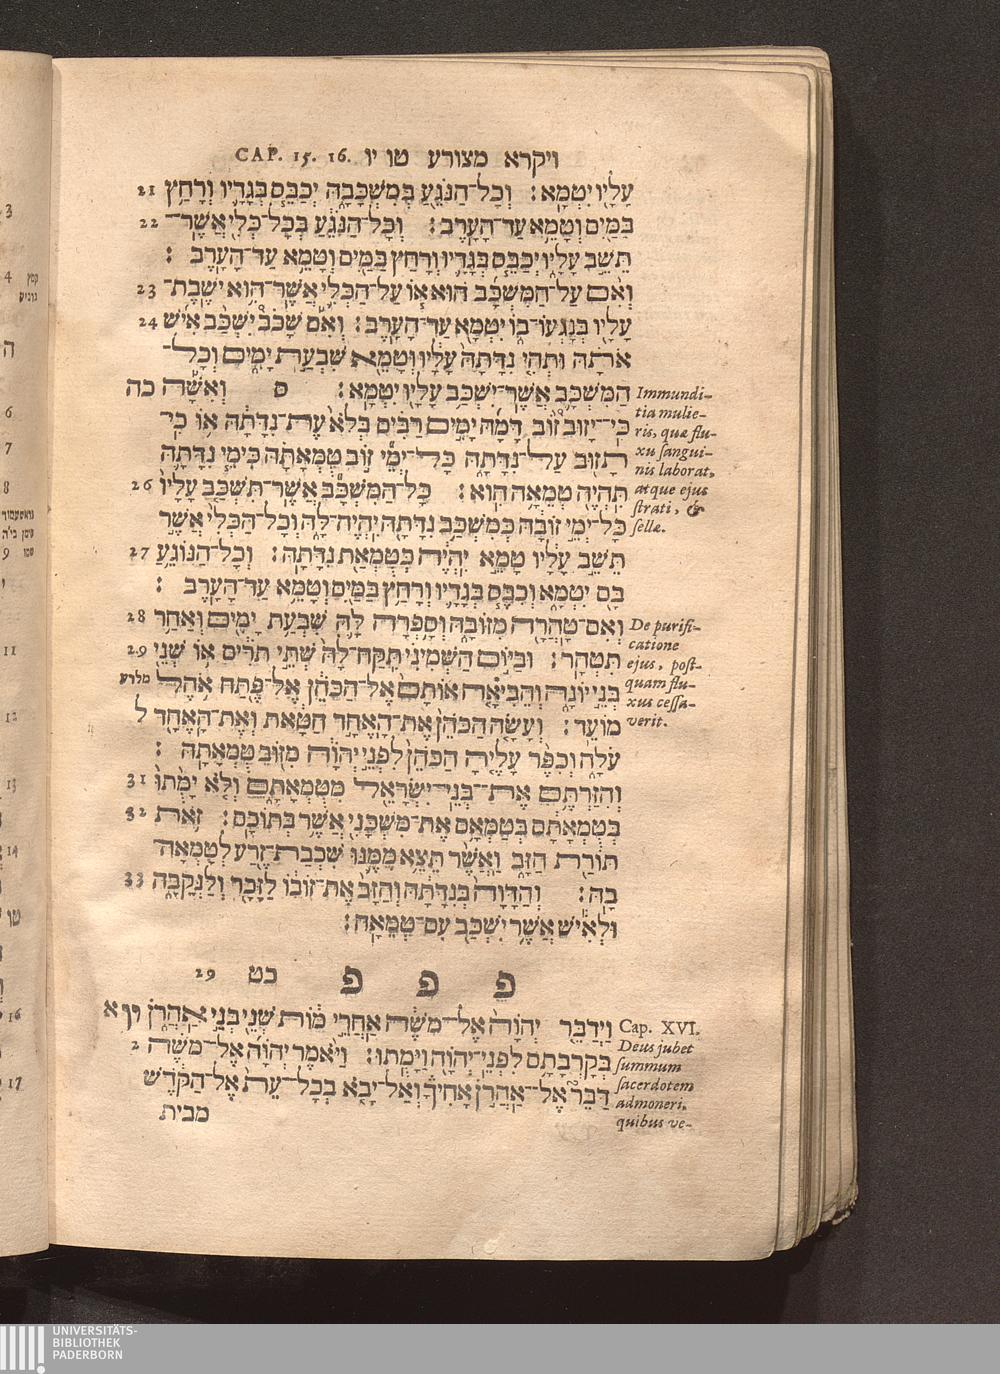 CAP. 15. 16. ויקרא מצורע טו יו
עָלָיו יִטְמָא׃ וְכָל־הַנֹּגֵעַ בְּמִשְׁכָּבָהּ יְכַבֵּס בְּגָדָיו וְרָחַץ 21
בַּמַּיִם וְטָמֵא עַד־הָעָרֶב׃ וְכָל־הַנֹּגֵעַ בְּכָל־כְּלִי אֲשֶׁר־ 22
תֵּשֵׁב עָלָיו יְכַבֵּס בְּגָדָיו וְרָחַץ בַּמַּיִם וְטָמֵא עַד־הָעָרֶב׃
וְאִם עַל־הַמִּשְׁכָּב הוּא אוֹ עַל־הַכְּלִי אֲשֶׁר־הִוא יֹשֶׁבֶת־ 23
עָלָיו בְּנָגְעוֹ־בוֹ יִטְמָא עַד־הָעָרֶב׃ וְאִם שָׁכֹב יִשְׁכַּב אִישׁ 24
אֹתָהּ וּתְהִי נִדָּתָהּ עָלָיו וְטָמֵא שִׁבְעַת יָמִים וְכָל־
הַמִּשְׁכָּב אֲשֶׁר־יִשְׁכַּב עָלָיו יִטְמָא׃ ס וְאִשָּׁה כה
כִּי־יָזוּב זוֹב דָּמָהּ יָמִים רַבִּים בְּלֹא עֶת־נִדָּתָהּ אוֹ כִי־
תָזוּב עַל־נִדָּתָהּ כָּל־יְמֵי זוֹב טֻמְאָתָהּ כִּימֵי נִדָּתָהּ
תִּהְיֶה טְמֵאָה הִוא׃ כָּל־הַמִּשְׁכָּב אֲשֶׁר־תִּשְׁכַּב עָלָיו 26
כָּל־יְמֵי זוֹבָהּ כְּמִשְׁכַּב נִדָּתָהּ יִהְיֶה־לָּהּ וְכָל־הַכְּלִי אֲשֶׁר
תֵּשֵׁב עָלָיו טָמֵא יִהְיֶה כְּטֻמְאַת נִדָּתָהּ׃ וְכָל־הַנּוֹגֵעַ 27
בָּם יִטְמָא וְכִבֶּס בְּגָדָיו וְרָחַץ בַּמַּיִם וְטָמֵא עַד־הָעָרֶב׃
וְאִם־טָהֲרָה מִזּוֹבָהּ וְסָפְרָה לָּהּ שִׁבְעַת יָמִים וְאַחַר 28
תִּטְהָר׃ וּבַיּוֹם הַשְּׁמִינִי תִּקַּח־לָהּ שְׁתֵּי תֹרִים אוֹ שְׁנֵי 29
בְּנֵי יוֹנָה וְהֵבִיאָה אוֹתָם אֶל־הַכֹּהֵן אֶל־פֶּתַח אֹהֶל מלרע
מוֹעֵד׃ וְעָשָׂה הַכֹּהֵן אֶת־הָאֶחָד חַטָּאת וְאֶת־הָאֶחָד ל
עֹלָה וְכִפֶּר עָלֶיהָ הַכֹּהֵן לִפְנֵי יְהוָֹה מִזּוֹב טֻמְאָתָהּ׃
וְהִזַּרְתֶּם אֶת־בְּנֵי־יִשְׂרָאֵל מִטֻּמְאָתָם וְלֹא יָמֻתוּ 31
בְּטֻמְאָתָם בְּטַמְּאָם אֶת־מִשְׁכָּנִי אֲשֶׁר בְּתוֹכָם׃ זֹאת 32
תּוֹרַת הַזָּב וַאֲשֶׁר תֵּצֵא מִמֶּנּוּ שִׁכְבַת־זֶרַע לְטָמְאָה־
בָהּ׃ וְהַדָּוָה בְּנִדָּתָהּ וְהַזָּב אֶת־זוֹבוֹ לַזָּכָר וְלַנְּקֵבָה 33
וּלְאִישׁ אֲשֶׁר יִשְׁכַּב עִם־טְמֵאָה׃
פ פ פ כט 29
וַיְדַבֵּר יְהוָֹה אֶל־מֹשֶׁה אַחֲרֵי מוֹת שְׁנֵי בְּנֵי אַהֲרֹן יו א
בְּקָרְבָתָם לִפְנֵי־יְהוָֹה וַיָּמֻתוּ׃ וַיֹּאמֶר יְהוָֹה אֶל־מֹשֶׁה 2
דַּבֵּר אֶל־אַהֲרֹן אָחִיךָ וְאַל־יָבֹא בְכָל־עֵת אֶל־הַקֹּדֶשׁ
מבית
Immundi-
tia mulie-
ris, quæ flu-
xu sangui-
nis laborat,
atque ejus
strati, &
sellæ.
De purifi-
catione
ejus, post-
quam flu-
xus cessa-
verit.
Cap. XVI.
Deus jubet
summum
sacerdotem
admoneri,
quibus ve-
3
4 קמץ
6
7
8
9
11
12
13
14
טו
16
17
UNIVERSITÄTS-
BIBLIOTHEK
PADERBORN